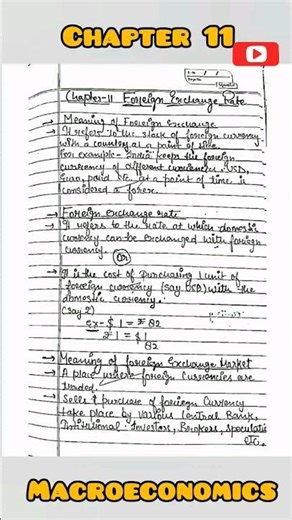 CHAPTER 11
Chapter-11 Foreign Exchange Rate
→ Meaning of Foreign Exchange
→ It refers to the stock of foreign currency
with a country at a point of time.
For example- India keeps the foreign
currencies of different currencies USD,
Euro, pound etc. at a point of time is
considered a forex.
→ Foreign exchange rate
→ It refers to the rate at which domestic
currency can be exchanged with foreign
currency.
OR
→ It is the cost of purchasing 1 unit of
foreign currency (say USD) with the
domestic currency.
(say ₹)
Ex- $ 1 = ₹ 82
₹ 1 = $ 1
82
→ Meaning of foreign Exchange Market
→ A place where foreign currencies are
traded.
→ Sells & purchase of foreign currency
take place by various Central Bank,
Institutional Investors, Brokers,
etc.
MACROECONOMICS